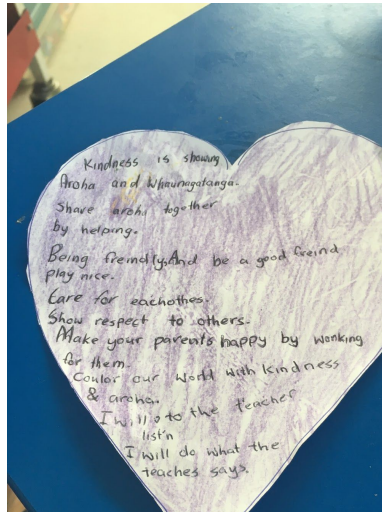 Kindness is showing
Aroha and Whaunugatanga.
Share aroha together
by helping.
Being freindly, And be a good freind
play nice.
Care for eachothes.
Show respect to others.
Make your parents happy by wonking
for them.
Coulor our world with kindness
& aroha.
I will to the teacher
list'n
I will do what the
teaches says.